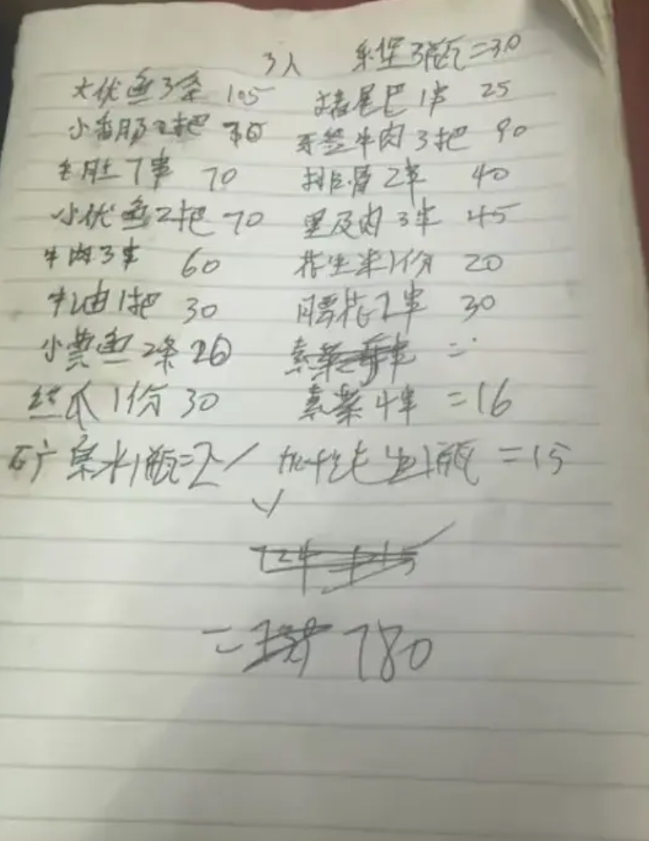 3人 乐堡3瓶=30
大优鱼3条 105 猪尾巴1串 25
小香肠2把 牙签牛肉3把 90
毛肚7串 70 排骨2串 40
小优鱼2把 70 里及肉3串 45
牛肉3串 60 花生米1份 20
牛油1把 30 腰花2串 30
小黄鱼2条 20 素菜
丝瓜1份 30 素菜4串 =16
矿泉水1瓶=2 加多宝1瓶 =15
724+
= 780